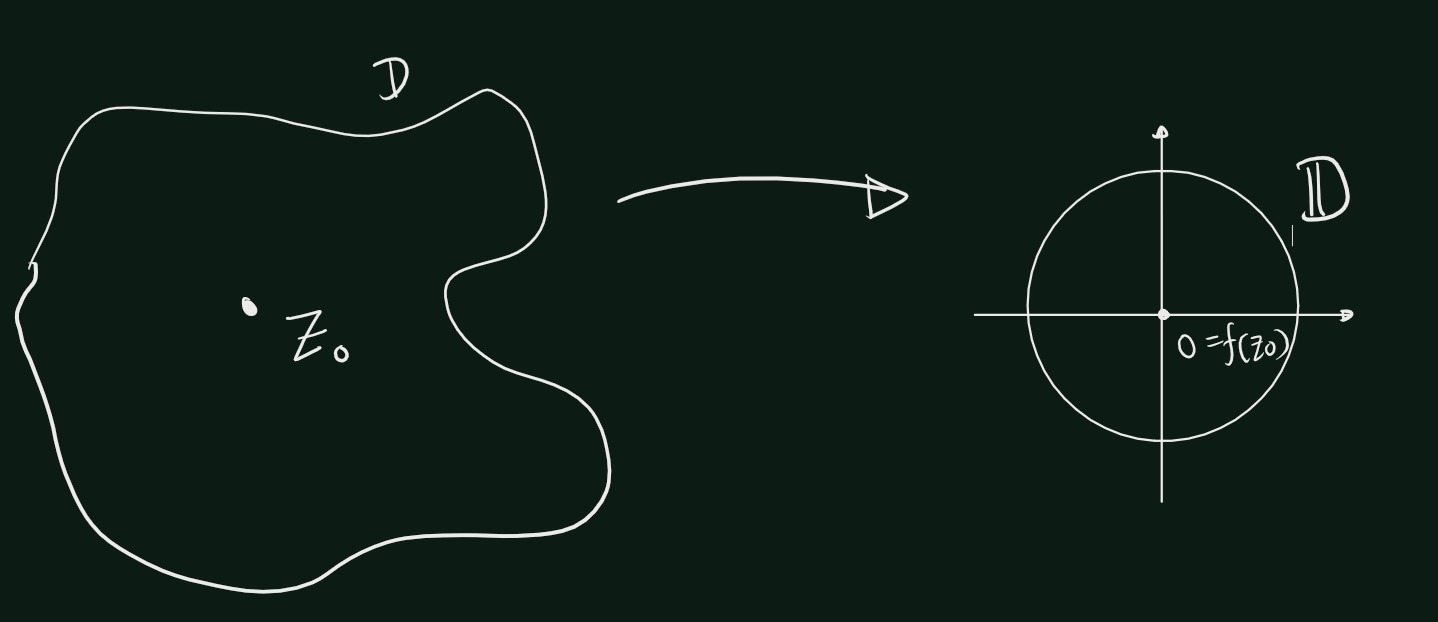 D
z₀
𝔻
0 = f(z₀)